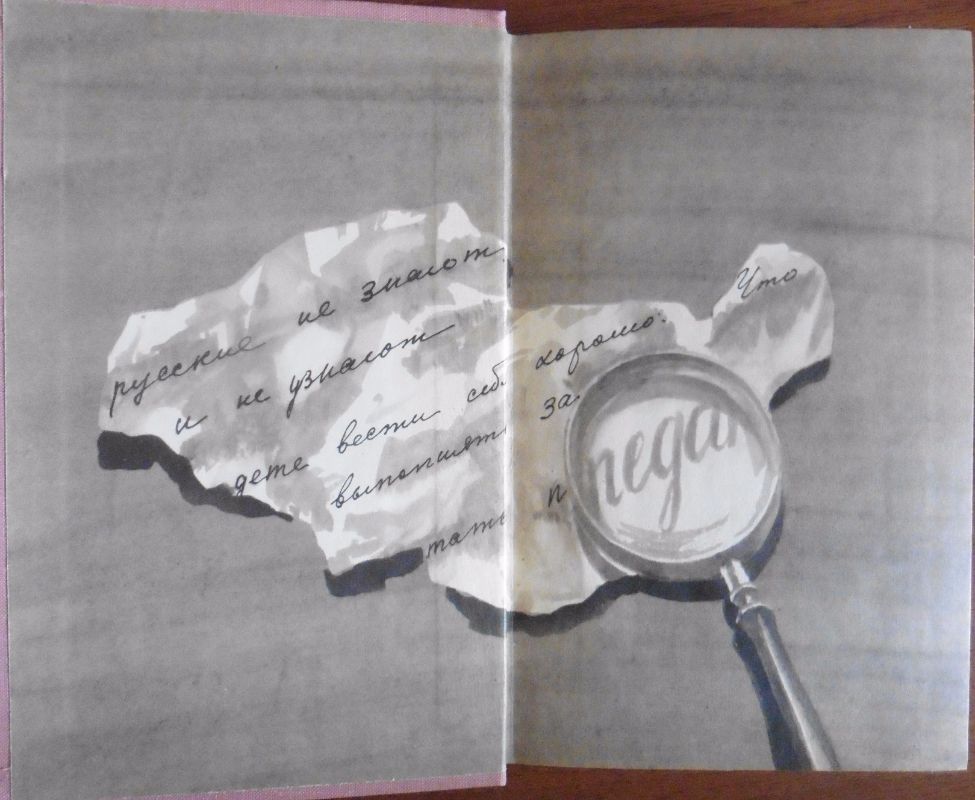 русские не знают
и не узнают
Что
дете вести себ хорошо:
выполнять за
тать п
педа